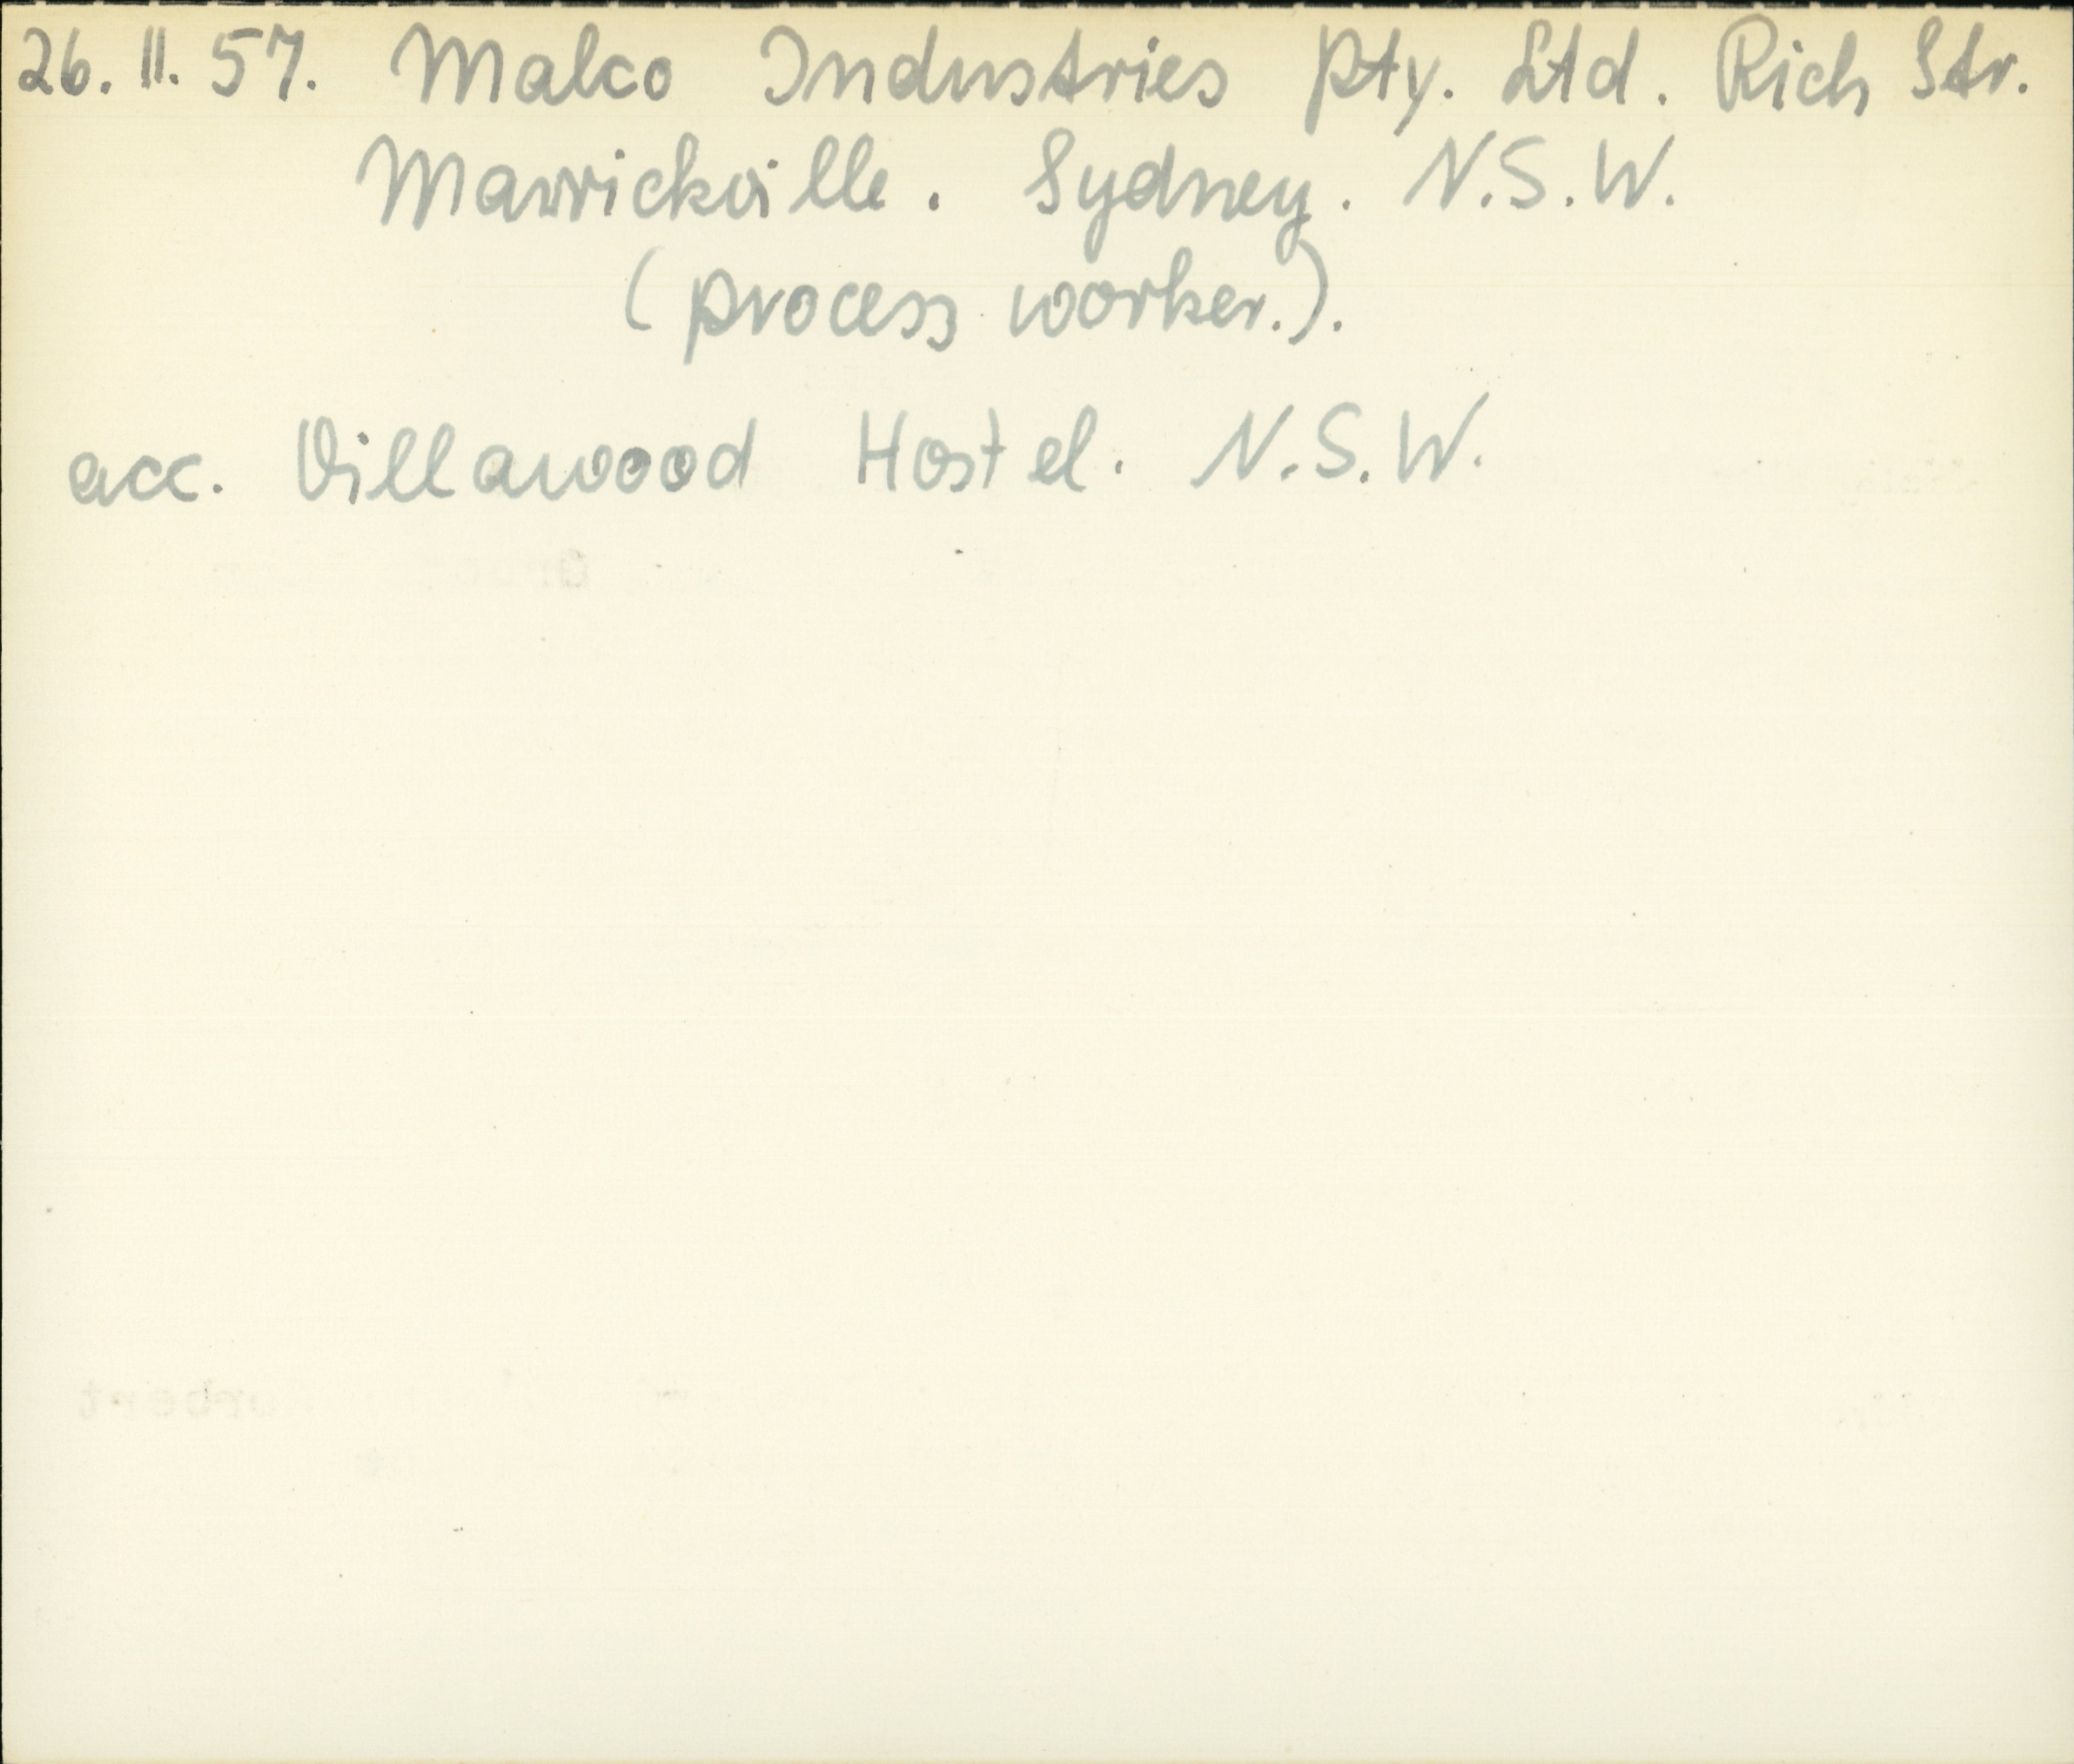 26. 11. 57. Malco Industries Pty. Ltd. Rich Str.
Marrickville. Sydney. N.S.W.
(process worker.).
acc. Villawood Hostel. N.S.W.